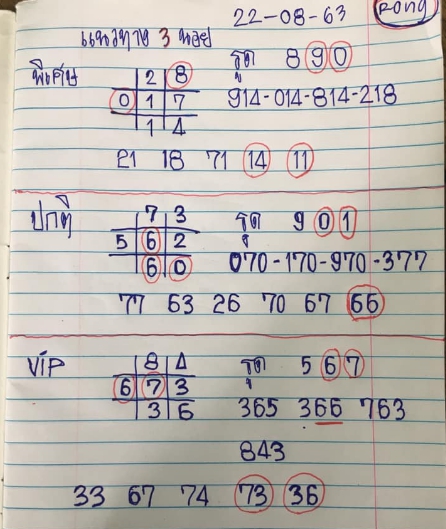 22-08-63 Rong
แนวทาง 3 หอย
พิเศษ 2 8 รูด 8 9 0
0 1 7 914-014-814-218
1 4
21 18 71 14 11
ปกติ 7 3 รูด 9 0 1
5 6 2 070-170-970-377
6 0
77 63 26 70 67 66
VIP 8 4 รูด 5 6 7
6 7 3 365 366 763
3 6
843
33 67 74 73 36